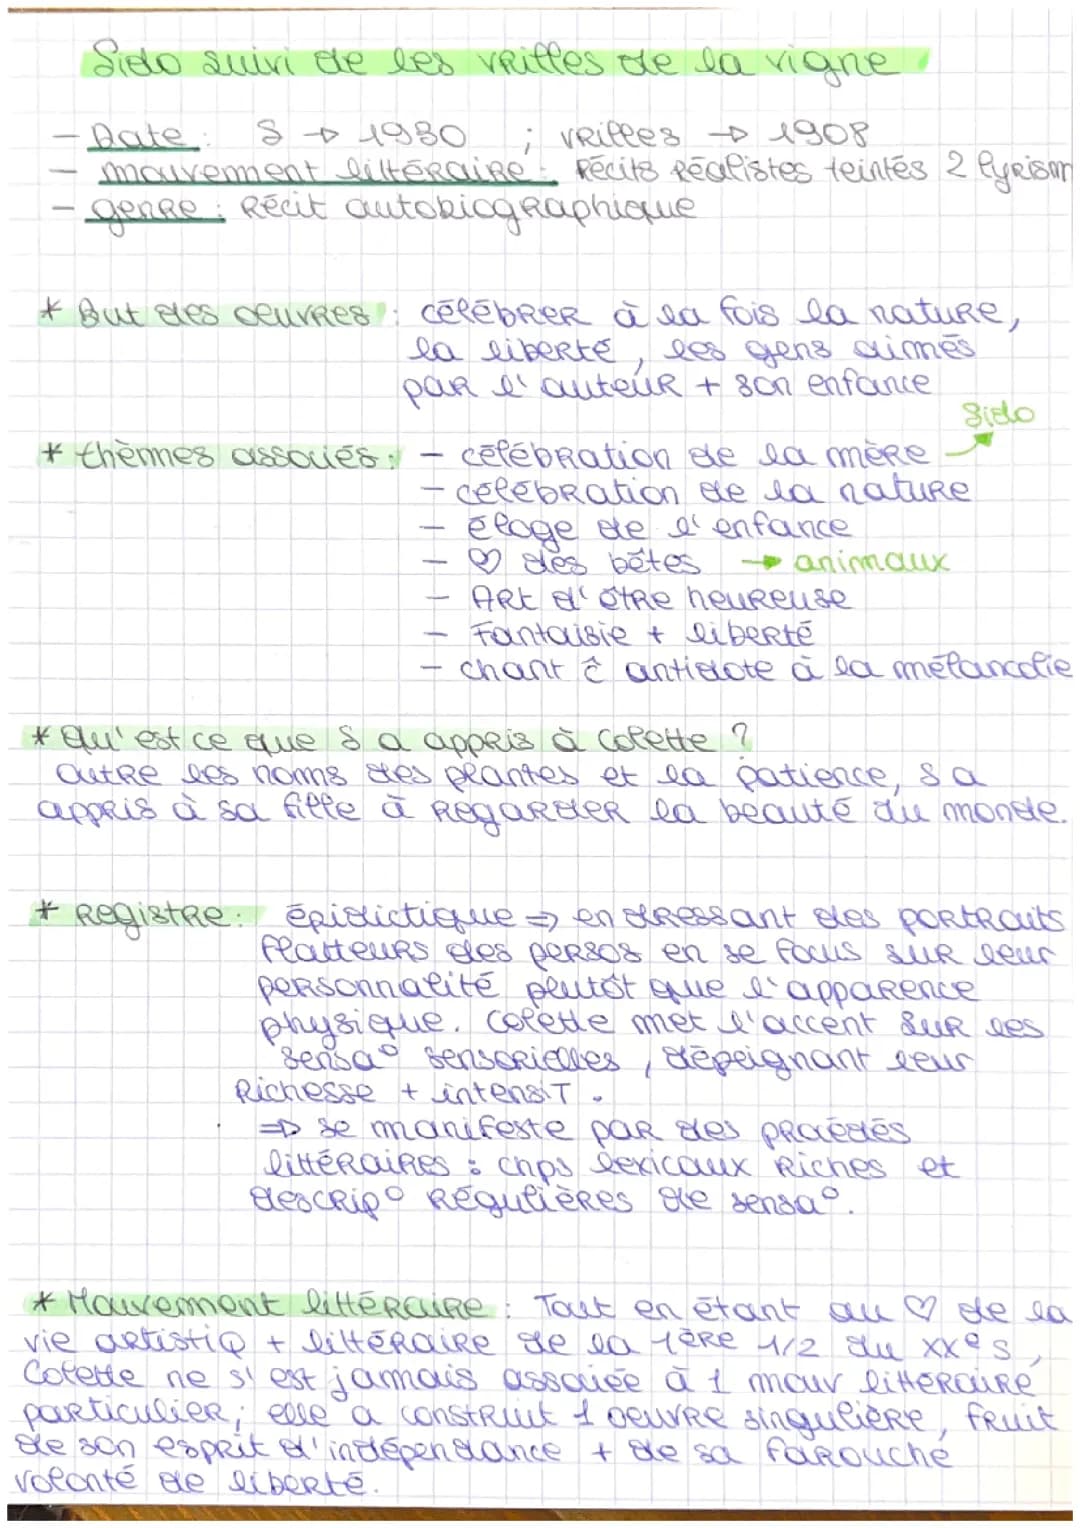 Sido suivi de les vrilles de la vigne
- Date : S → 1930 ; vrilles → 1908
- mouvement littéraire : Récits réalistes teintés 2 lyrism
- genre : Récit autobiographique
* But des oeuvres : célébrer à la fois la nature,
la liberté, les gens aimés
par l'auteur + son enfance
Sido
* thèmes associés : - célébration de la mère
- célébration de la nature
- éloge de l'enfance
- ♡ des bêtes → animaux
- Art d'être heureuse
- Fantaisie + liberté
- chant ĉ antidote à la mélancolie
* Qu'est ce que S a appris à Colette ?
outre les noms des plantes et la patience, S a
appris à sa fille à regarder la beauté du monde.
* Registre : épidictique ⇒ en dressant des portraits
flatteurs des persos en se focus sur leur
personnalité plutôt que l'apparence
physique. Colette met l'accent sur les
sensa° sensorielles, dépeignant leur
Richesse + intensiT.
⇒ se manifeste par des procédés
littéraires : chps lexicaux riches et
descrip° régulières de sensa°.
* Mouvement littéraire : Tout en étant au ♡ de la
vie artistiQ + littéraire de la 1ère 1/2 du XXe s,
Colette ne s'est jamais associée à 1 mouv littéraire
particulier ; elle a construit 1 oeuvre singulière, fruit
de son esprit d'indépendance + de sa farouche
volonté de liberté.